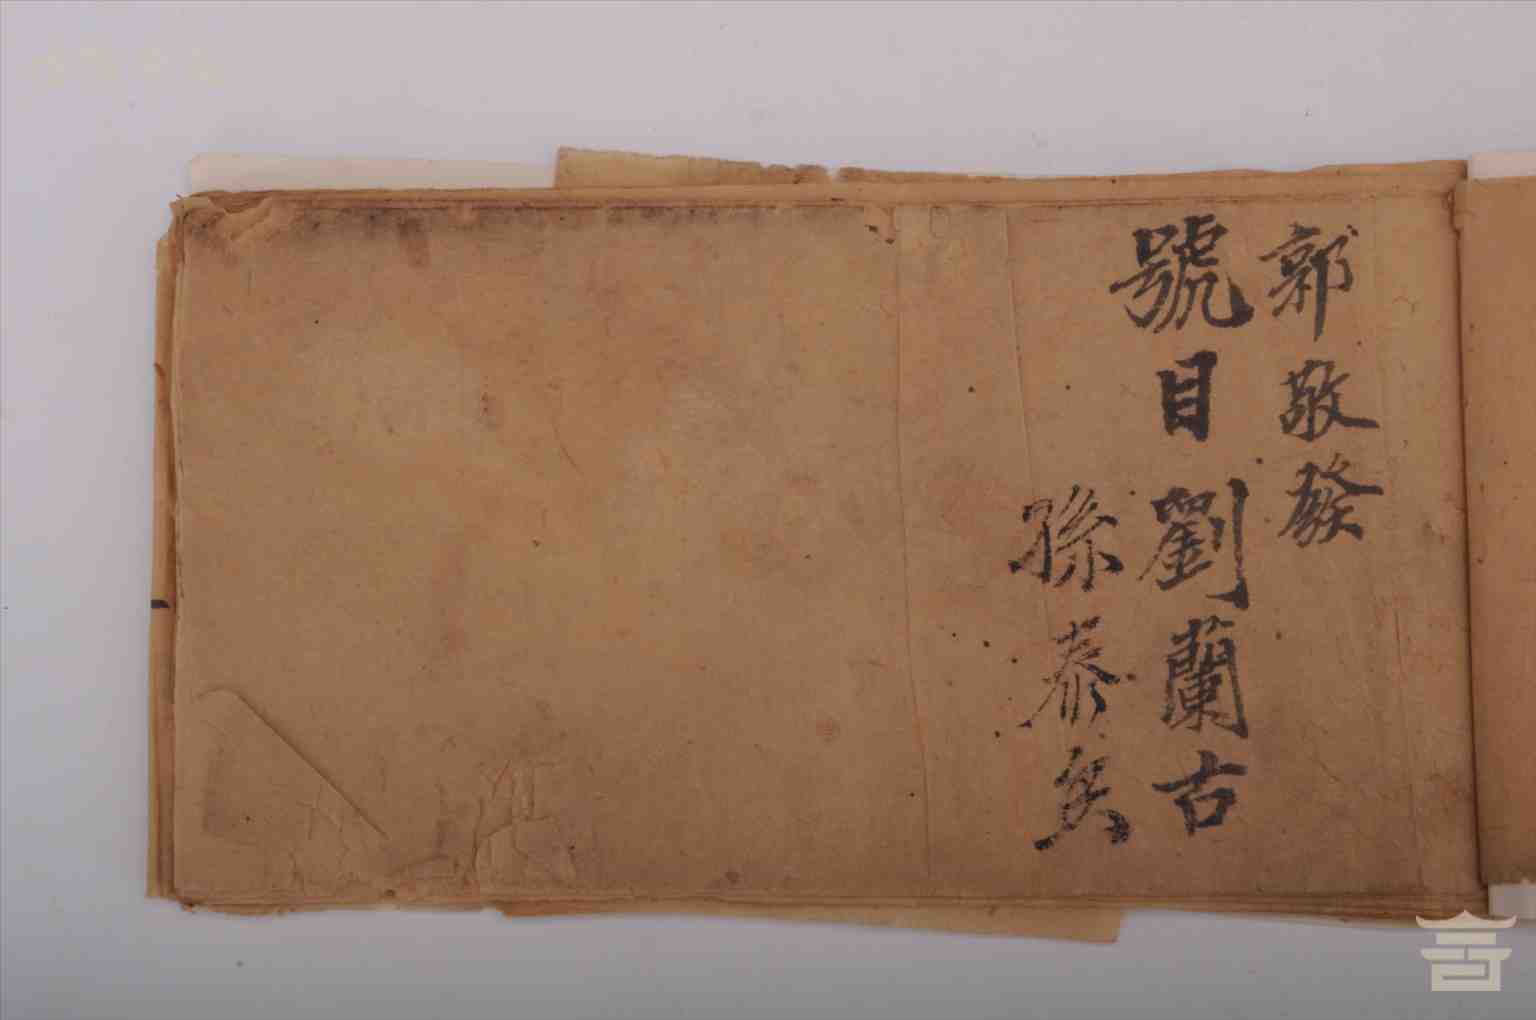 郭敬發
號目劉蘭古
孫泰兵